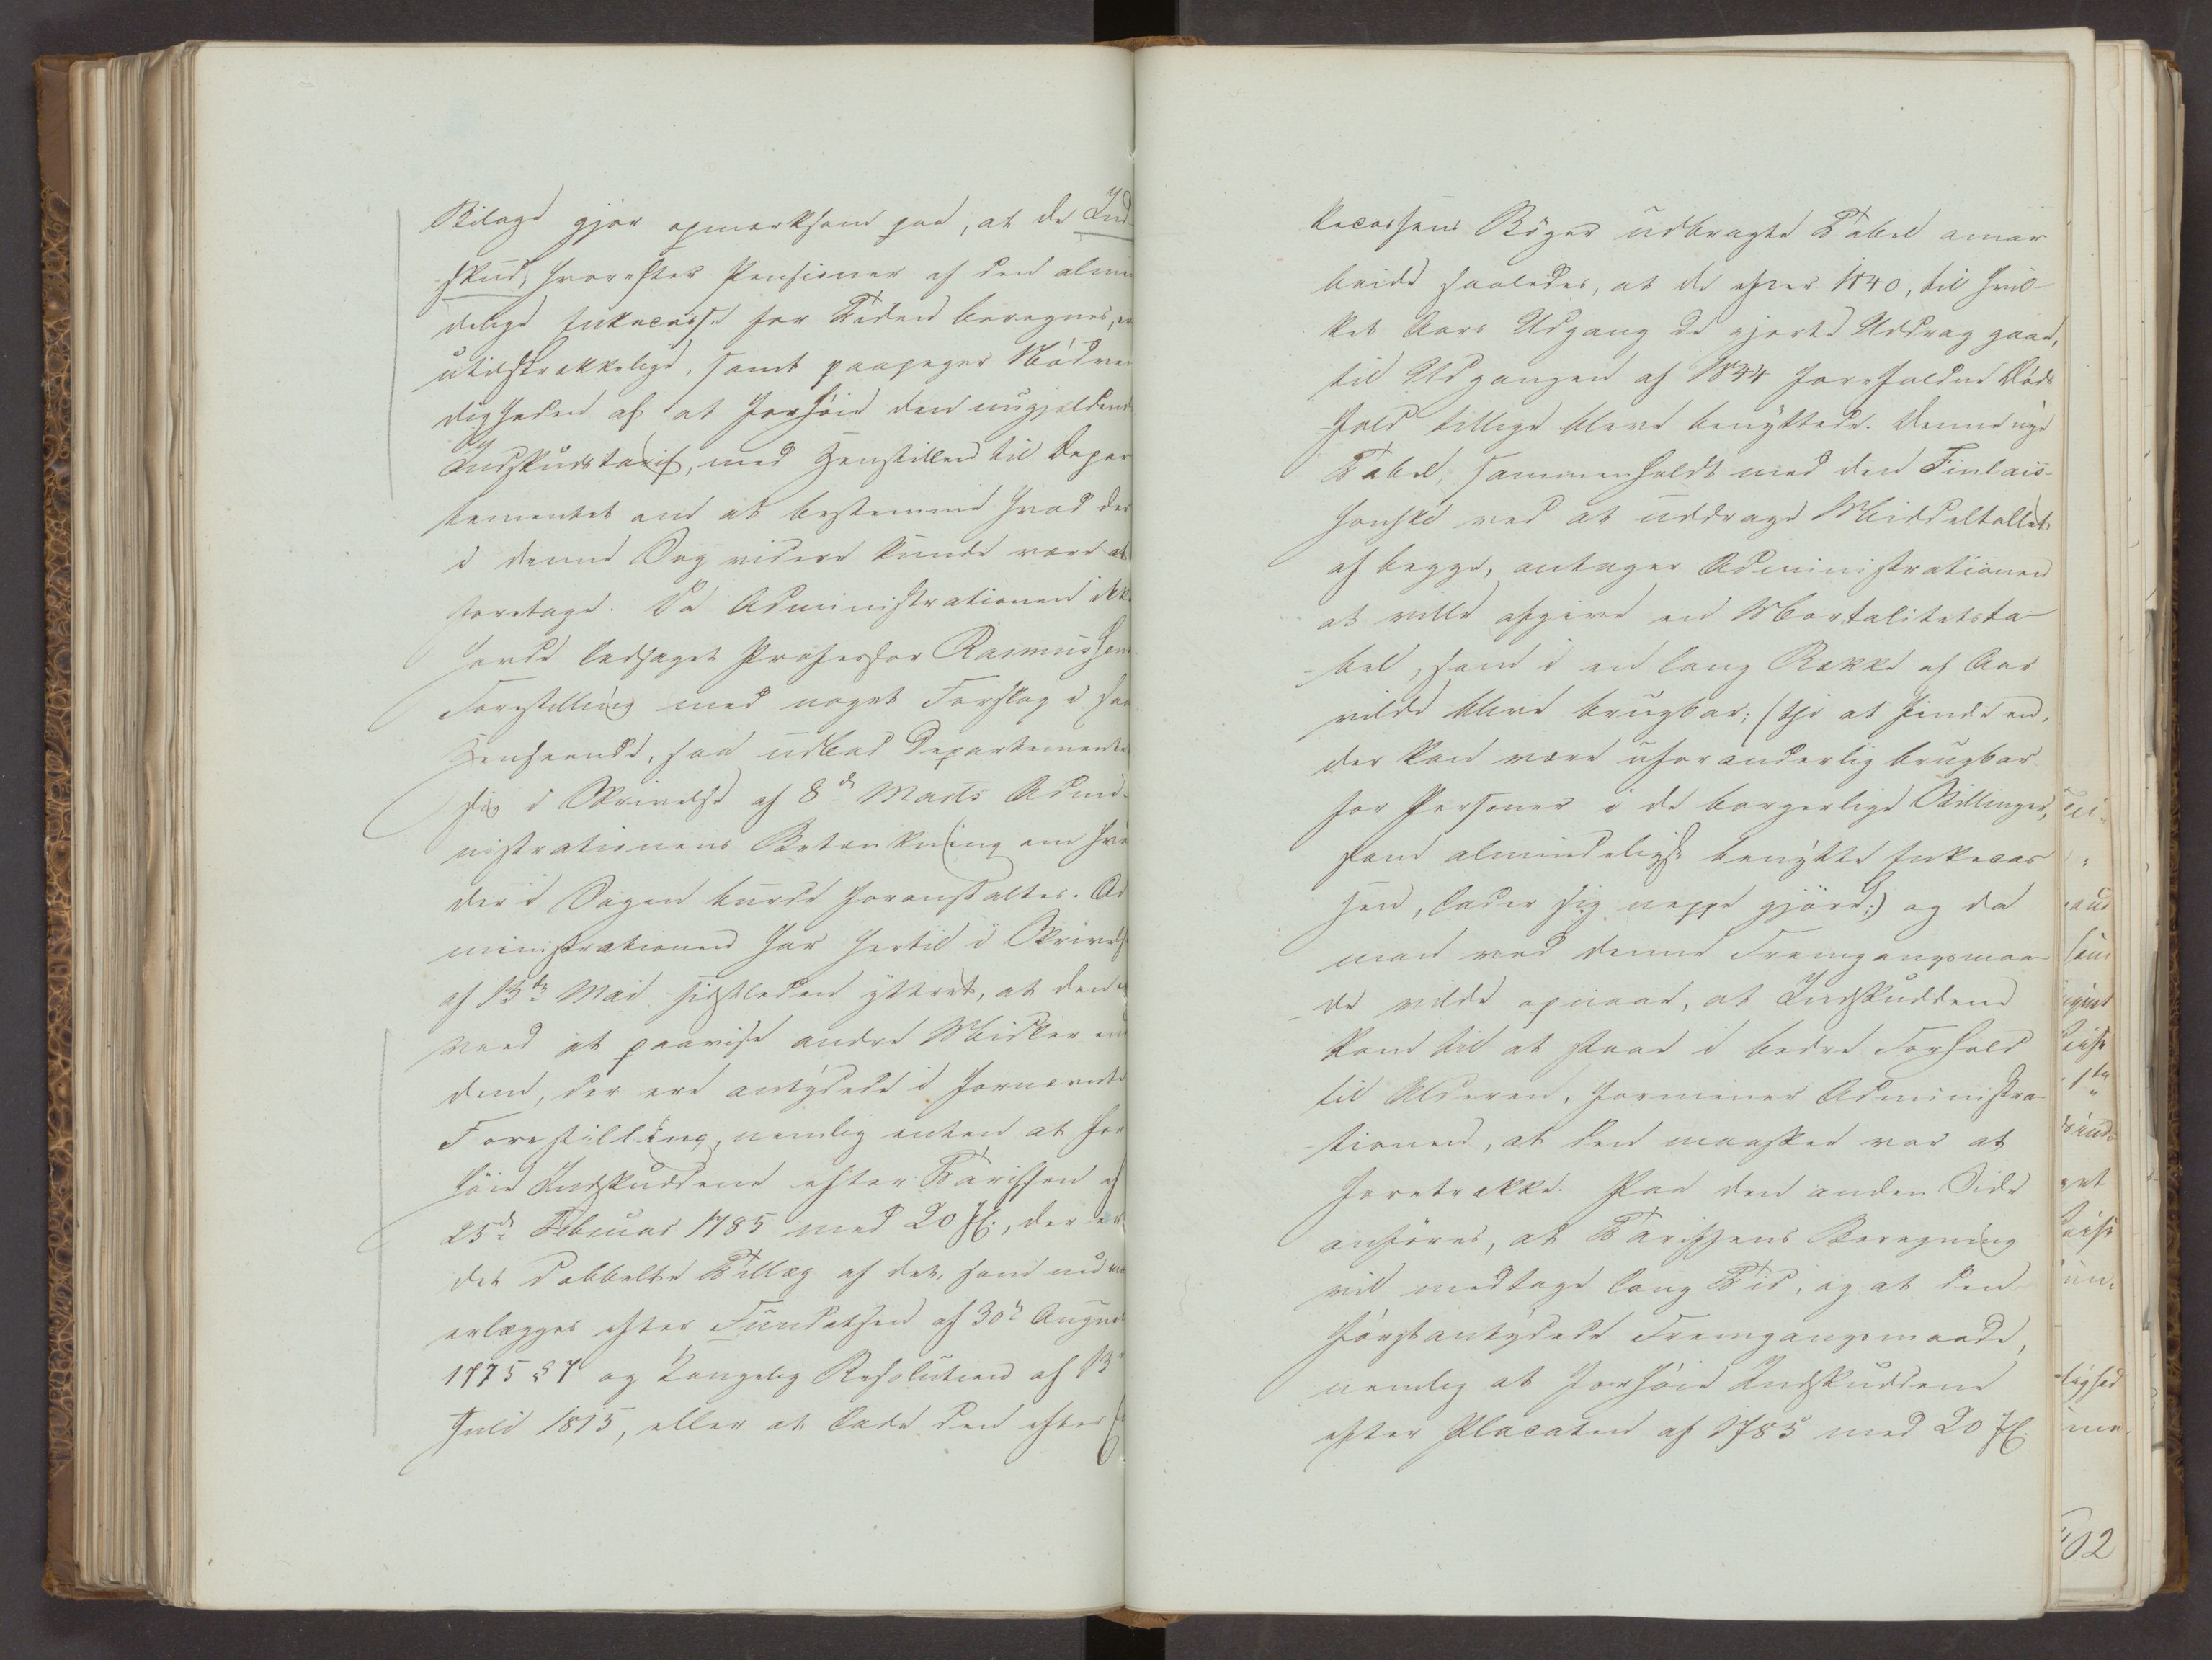 Bilage gjør opmærksom paa, at de Ind-
skud, hvorefter Pensioner af den almin
delige Enkecasse for Tiden beregnes, er
utilstrækkelige, samt paapeger Nødven
digheden af at forhøie den nugjeldende
Indskudstarif, med Henstillen til Depar
tementet om at bestemme hvad der
i denne Sag videre kunde være at
foretage. Da Administrationen ikke
havde ledsaget Professor Rasmussens
Forestilling med noget Forslag i saa
Henseende, saa udbad Departementet
sig i Skrivelse af 8de Marts Admi-
nistrationens Betænkning om hvad
der i Sagen burde foranstaltes. Ad
ministrationen har hertil i Skrivelse
af 13de Mai sidstleden yttret, at den ei
veed at paavise andre Midler end
dem, der ere antydede i fornævnte
Forestilling, nemlig enten at for
høie Indskuddene efter Tariffen af
25de Februar 1785 med 20 pC., der er
det dobbelte Tillæg af det, som nu maa
erlægges efter Fundatsen af 30te August
1775 § 7 og Kongelig Resolution af 13
Juli 1815, eller at lade den efter En
kecassens Bøger udbragte Tabel omar
beide saaledes, at de efter 1840, til hvil-
ket Aars Udgang de gjorte Uddrag gaae,
til Udgangen af 1844 forefaldne Døds
fald tillige bleve benyttede. Denne nye
Tabel, sammenholdt med den Finlais-
honske ved at uddrage Middeltallet
af begge, antager Administrationen
at ville afgive en Mortalitetsta-
-bel, som i en lang Række af Aar
vilde blive brugbar; (thi at finde en,
der kan være uforanderlig brugbar
for Personer i de borgerlige Stillinger,
som almindeligst benytte Enkecas
sen, lader sig neppe gjøre;) og da
man ved denne Fremgangsmaa-
-de vilde opnaae, at Indskuddene
kom til at staae i bedre Forhold
til Alderen, formener Administra-
-tionen, at den maaskee var at
foretrække. Paa den anden Side
anføres, at Tariffens Beregning
vil medtage lang Tid, og at den
først antydede Fremgangsmaade,
nemlig at forhøie Indskuddene
efter Placaten af 1785 med 20 pC.